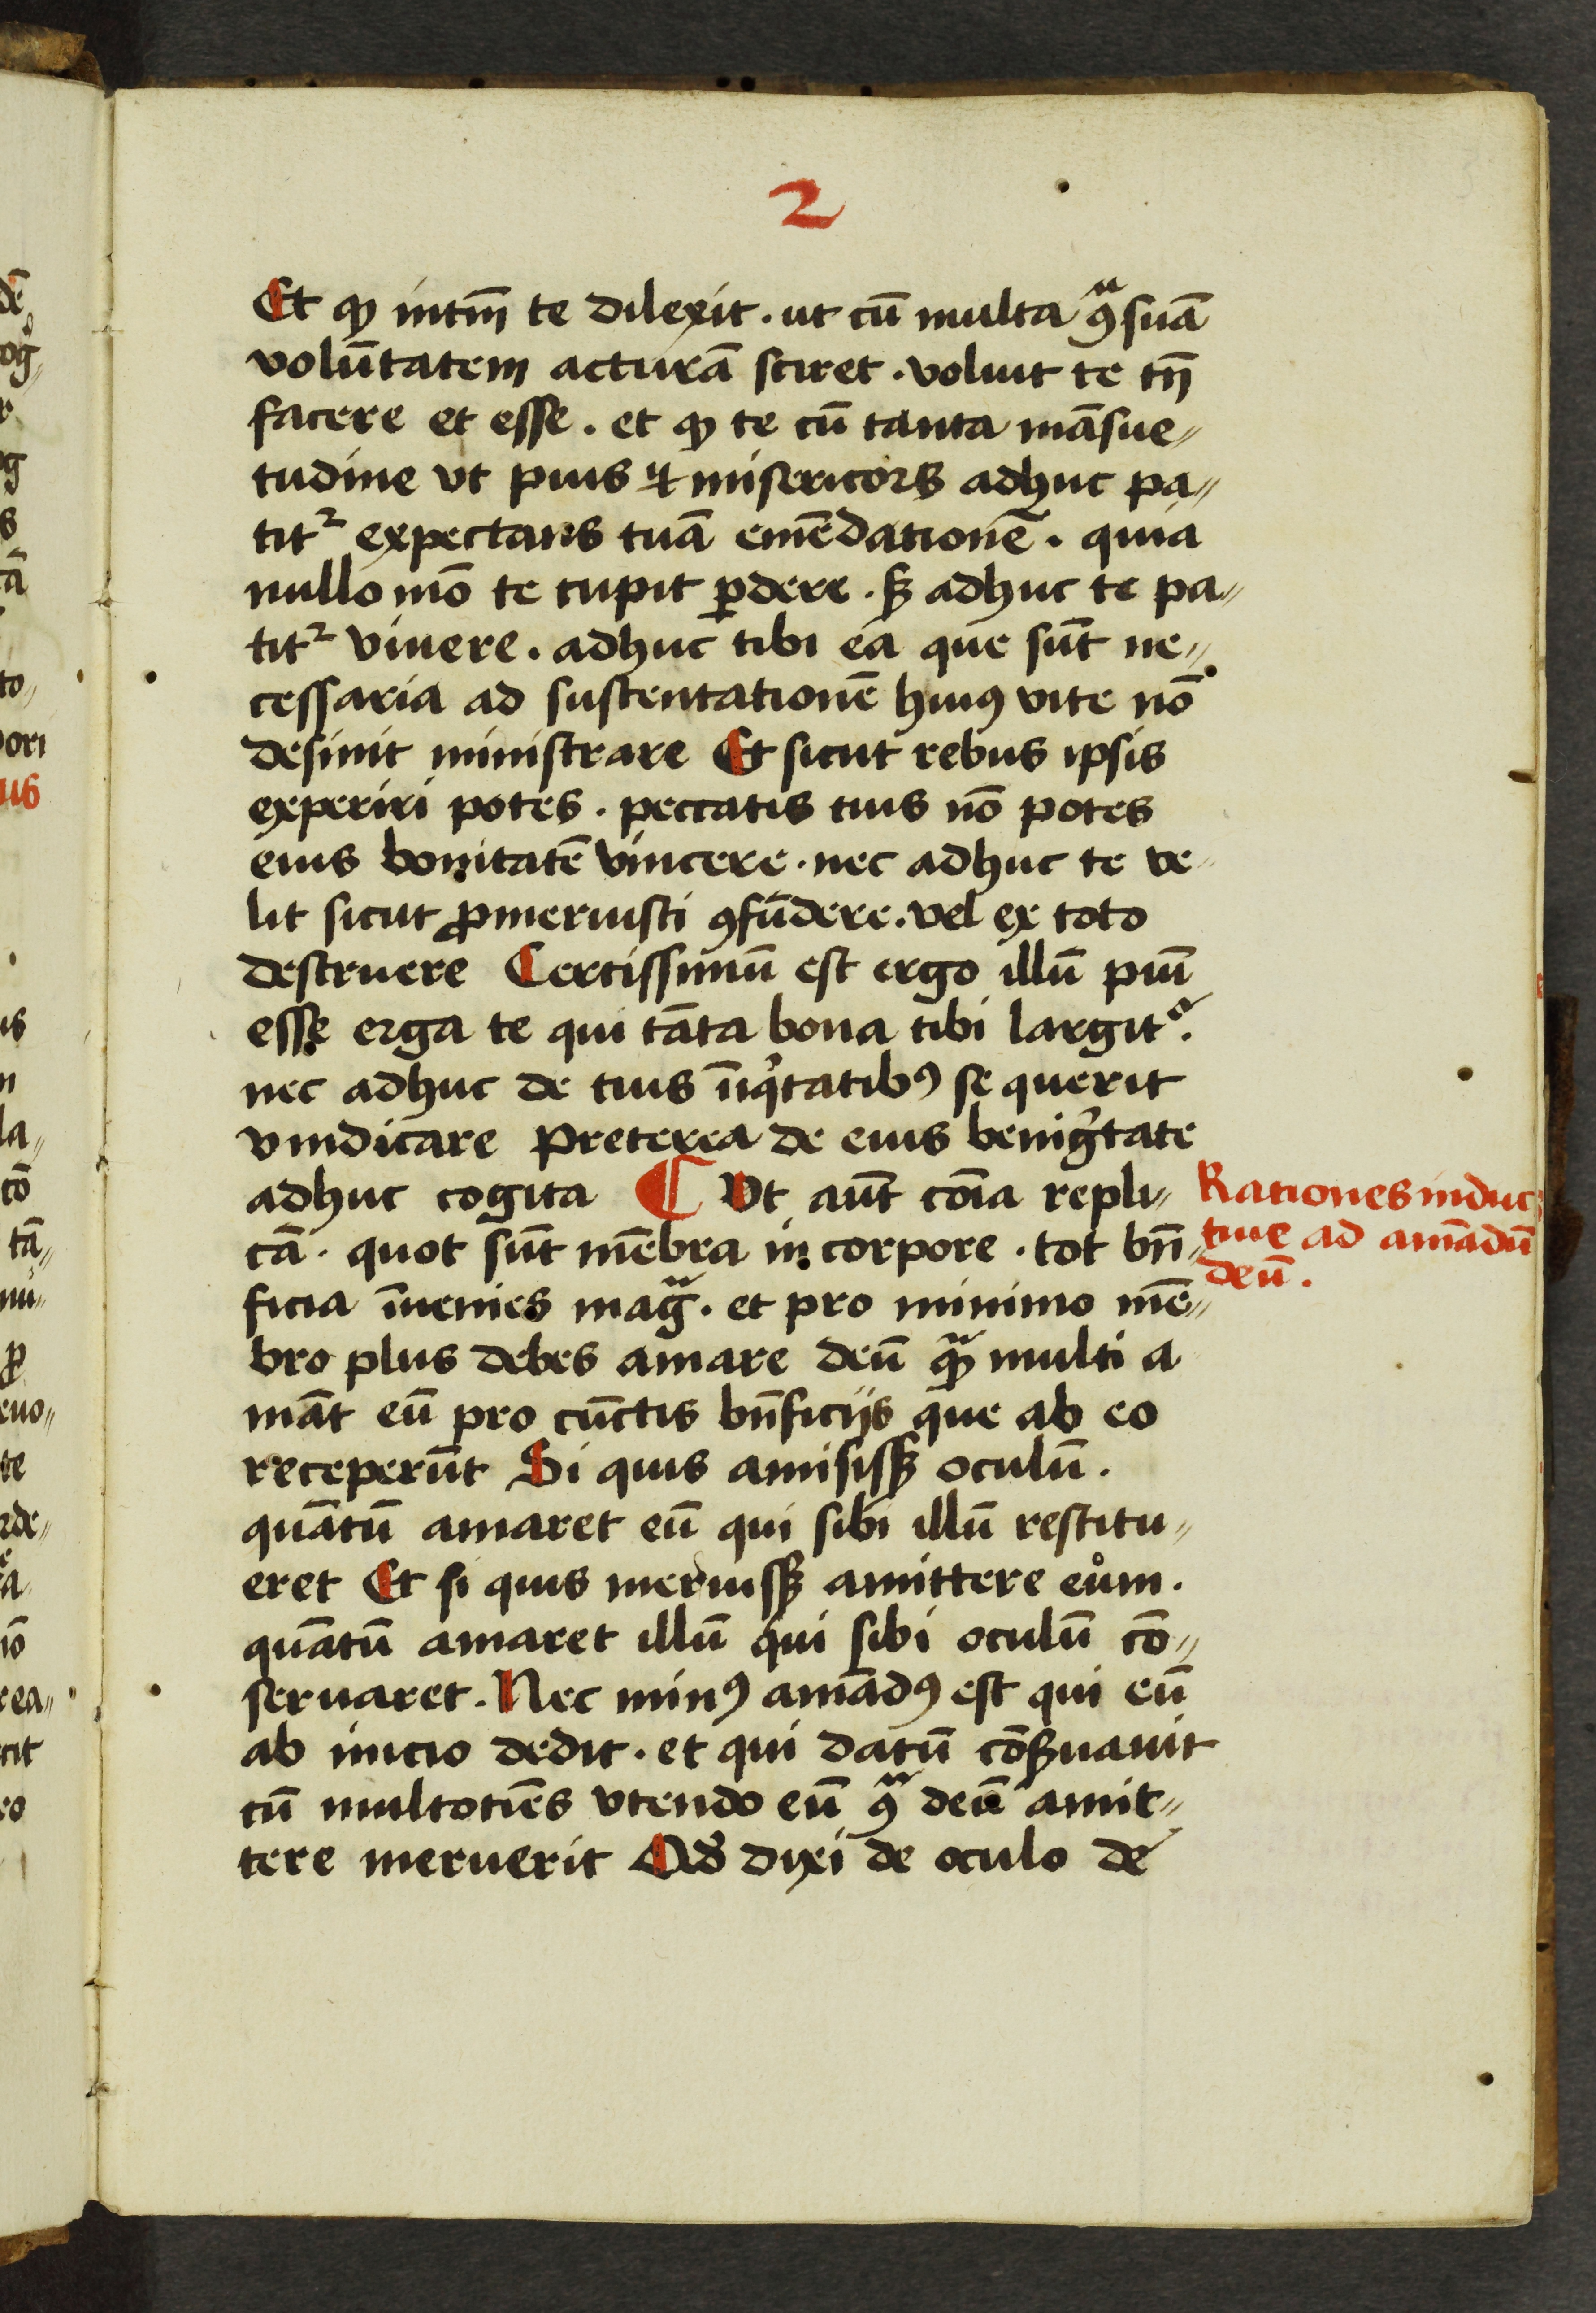 2
Et qꝫ intm̄ te dilexit. ut cū multa ꝯᵃ suā
volūtatem acturā sciret. voluit te tn̄
facere et esse. et qꝫ te cū tanta māsue„
tudine vt pius ⁊ misericors adhuc pa„
titᷣ expectans tuā emēdationē. quia
nullo mō te cupit ꝑdere. sꝫ adhuc te pa„
titᷣ viuere. adhuc tibi ea que sūt ne„
cessaria ad sustentationē huiꝰ vite nō
desinit ministrare Et sicut rebus ipsis
experiri potes. peccatis tuis nō potes
eius bonitatē vincere. nec adhuc te ve„
lit sicut ꝓmeruisti ꝯfūdere. vel ex toto
destruere Certissimū est ergo illū piū
esse erga te qui tāta bona tibi largitᷣ.
nec adhuc de tuis īiqͥtatibꝰ se querit
vindicare Preterea de eius benigͥtate
adhuc cogita ¶ Vt aūt oīa repli„
cā. quot sūt mēbra in corpore. tot bn̄„
ficia īuenies magᷓ. et pro minimo mē„
bro plus debes amare deū qᷓꝫ multi a
māt eū pro cūctis bn̄ficijs que ab eo
receperūt Si quis amisissꝫ oculū.
quātū amaret eū qui sibi illū restitu„
eret Et si quis meruissꝫ amittere eum.
quātū amaret illū qui sibi oculū cō„
seruaret. Nec minꝰ amādꝰ est qui eū
ab inicio dedit. et qui datū cōẜuauit
cū multotiēs vtendo eū ꝯᵃ deū amit„
tere meruerit Qḋ dixi de oculo de
Rationes induc„
tiue ad amādū
deū.